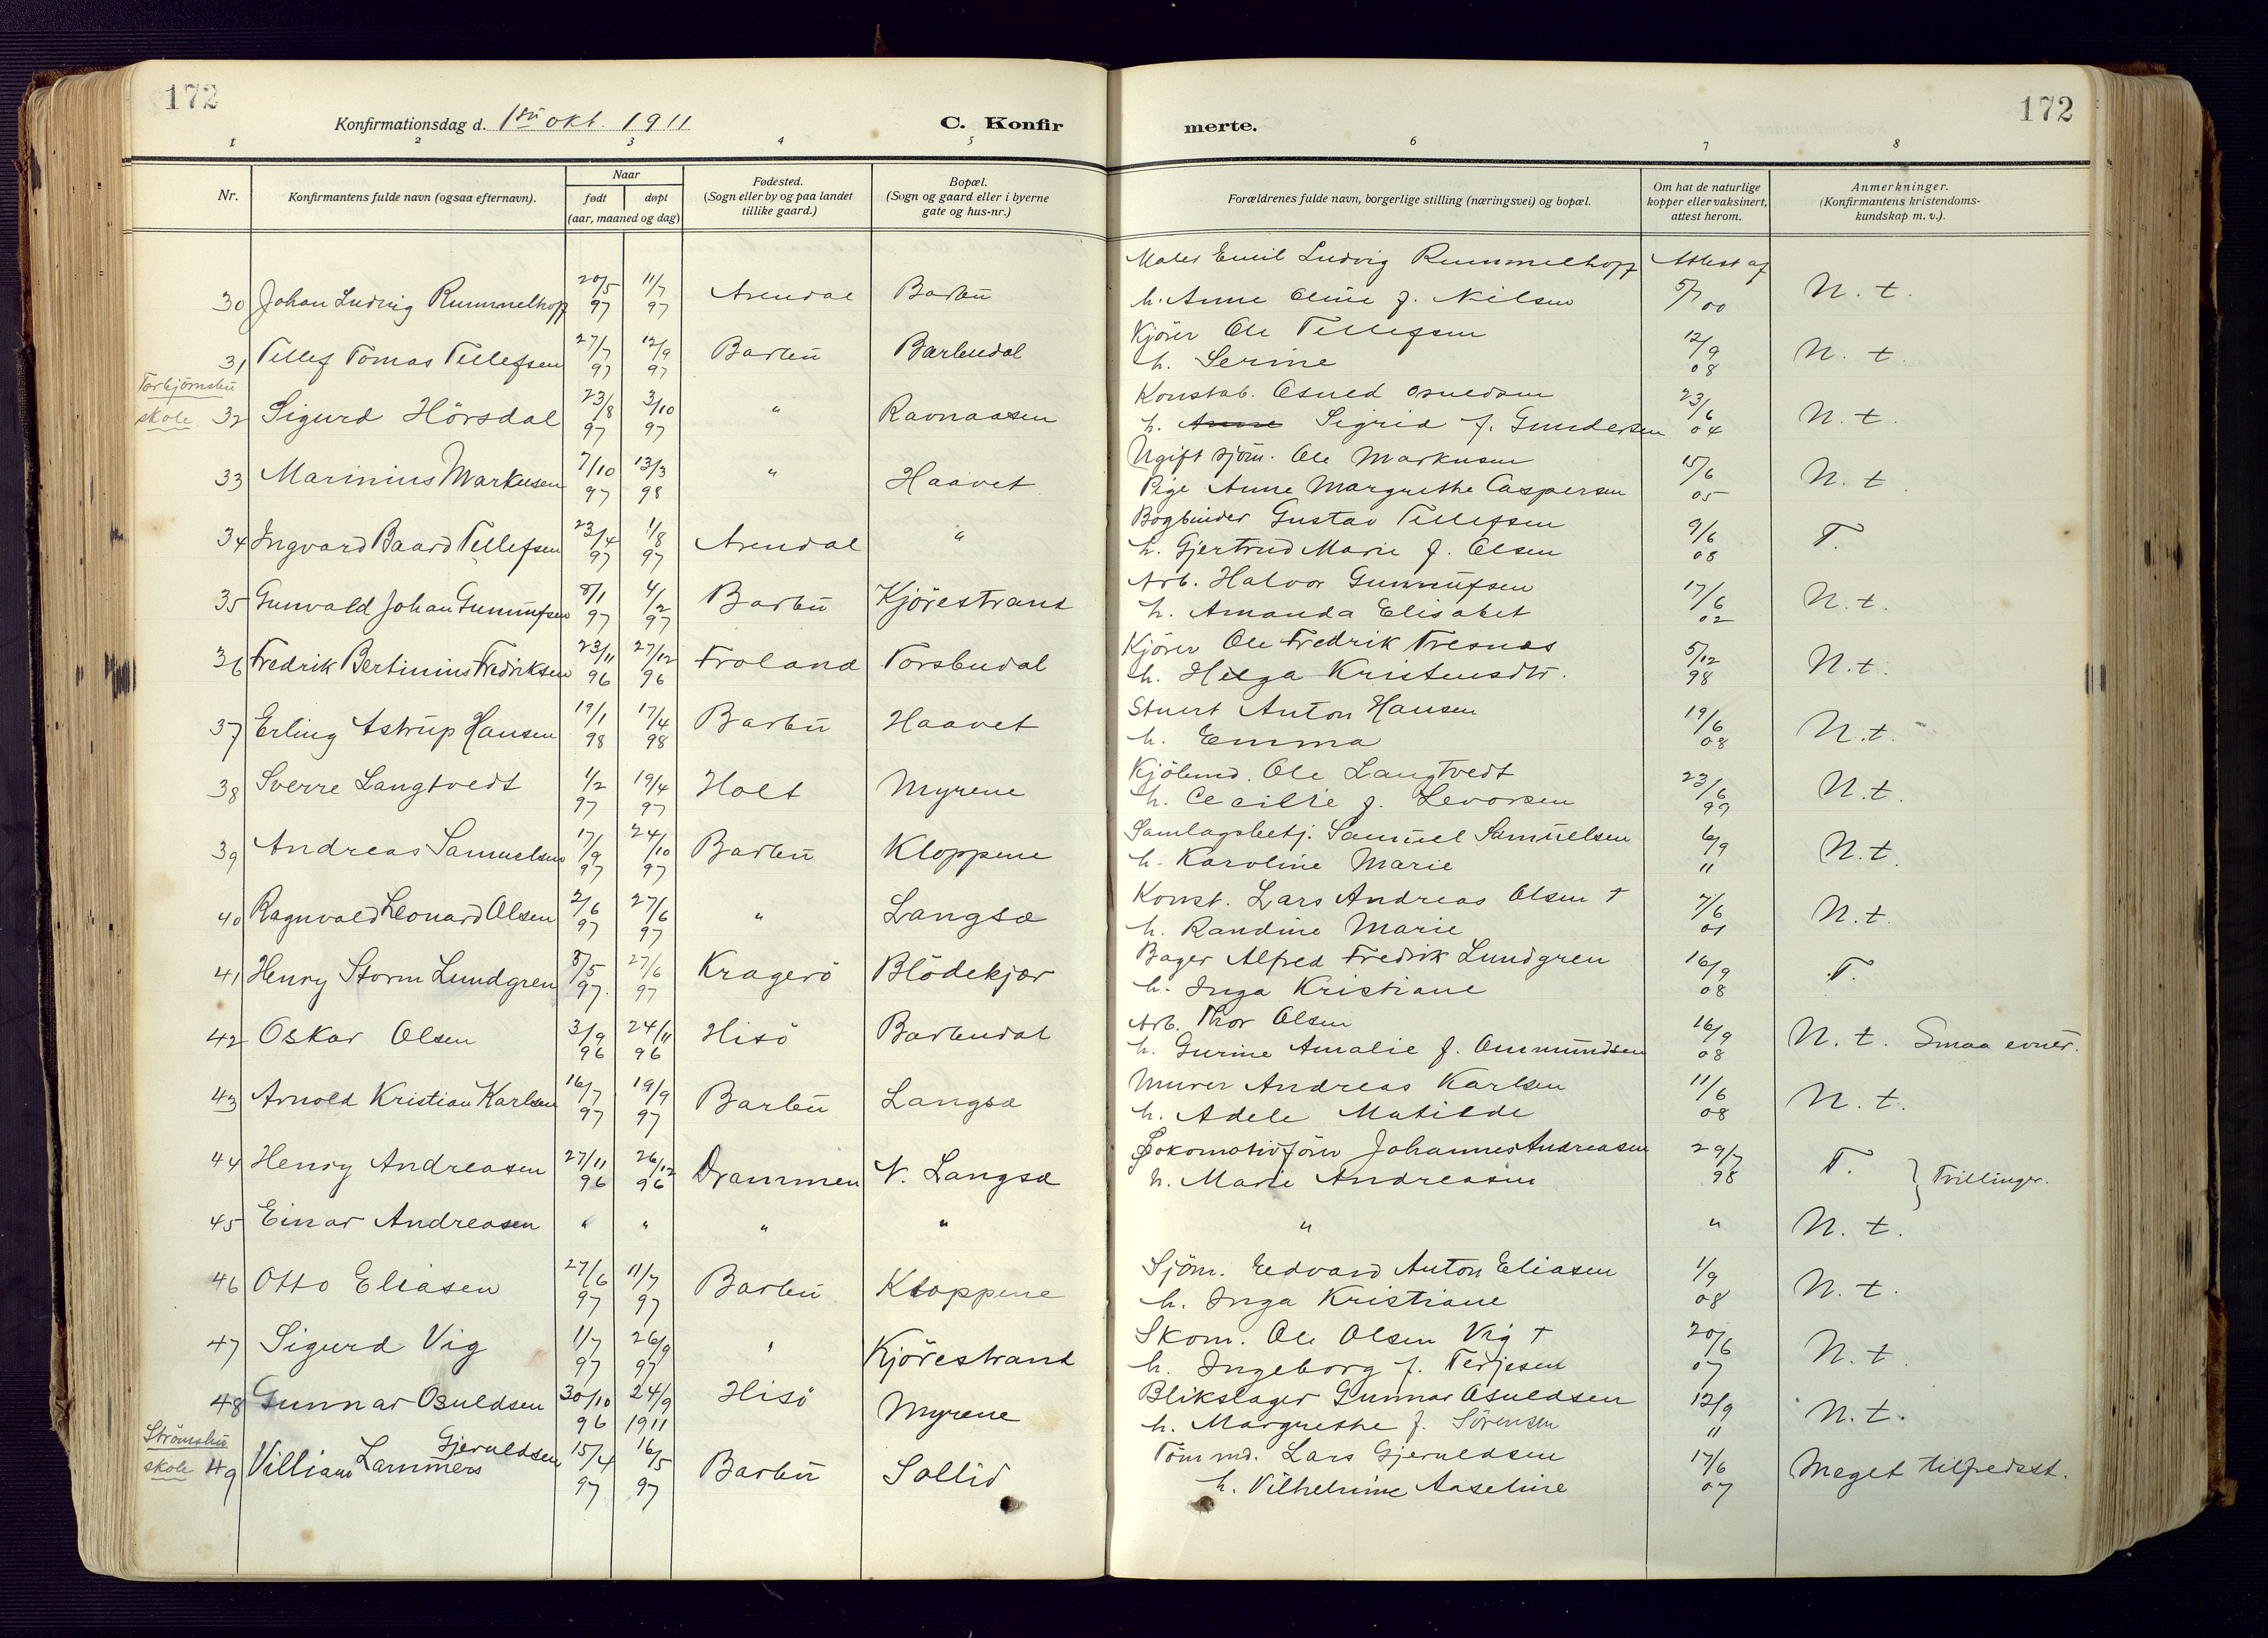 172
172
Konfirmationsdag d. 1ste okt. 1911
C. Konfir
merte.
1 2 3 4 5 6 7 8
Nr.
Konfirmantens fulde navn (ogsaa efternavn).
Naar
født døpt
(aar, maaned og dag)
Fødested.
(Sogn eller by og paa landet
tillike gaard.)
Bopæl.
(Sogn og gaard eller i byerne
gate og hus-nr.)
Forældrenes fulde navn, borgerlige stilling (næringsvei) og bopæl.
Om hat de naturlige
kopper eller vaksinert,
attest herom.
Anmerkninger.
(Konfirmantens kristendoms-
kundskap m. v.).
Maler Emil Ludvig Rummelhoff Attest af
30 Johan Ludvig Rummelhoff 20/5 97 11/7 97 Arendal Barbu h. Anne Oline f. Nilsen 5/7 00 N. t.
Kjörer Ole Tellefsen
31 Tellef Tomas Tellefsen 27/7 97 12/9 97 Barbu Barbudal h. Serine 12/9 08 N. t.
Torbjørnsbu
skole
Konstab. Osuld Osuldsen
32 Sigurd Hörsdal 23/8 97 3/10 97 " Ravnaasen h. Anne Sigrid f. Gundersen 23/6 04 N. t.
Ugift sjöm. Ole Markusen
33 Marinius Markusen 7/10 97 13/3 98 " Haavet Pige Anne Margrethe Caspersen 15/6 05 N. t.
Bogbinder Gustav Tellefsen
34 Ingvard Baard Tellefsen 23/4 97 1/8 97 Arendal " h. Gjertrud Marie f. Olsen 9/6 08 T.
Arb. Halvor Gunnufsen
35 Gunvald Johan Gunnufsen 8/1 97 4/2 97 Barbu Kjörestrand h. Amanda Elisabet 17/6 02 N. t.
Kjörer Ole Fredrik Fresnes
36 Fredrik Bertinius Fredriksen 23/11 96 27/12 96 Froland Torsbudal h. Helga Kristensdtr. 5/12 98 N. t.
Stuert Anton Hansen
37 Erling Astrup Hansen 19/1 98 17/4 98 Barbu Haavet h. Emma 19/6 08 N. t.
Kjöbmd. Ole Langtvedt
38 Sverre Langtvedt 1/2 97 19/4 97 Holt Myrene h. Cecilie f. Levorsen 23/6 99 N. t.
Samlagsbetj. Samuel Samuelsen
39 Andreas Samuelsen 17/9 97 24/10 97 Barbu Kloppene h. Karoline Marie 6/9 11 N. t.
Konst. Lars Andreas Olsen †
40 Ragnvald Leonard Olsen 2/6 97 27/6 97 " Langsæ h. Randine Marie 7/6 01 N. t.
Bager Alfred Fredrik Lundgren
41 Henry Storm Lundgren 8/5 97. 27/6 97 Kragerö Blödekjær h. Inga Kristiane 16/9 08 T.
Arb. Thor Olsen
42 Oskar Olsen 3/9 96 24/11 96 Hisö Barbudal h. Gurine Amalie f. Ommundsen 16/9 08 N. t. Smaa evner.
Murer Andreas Karlsen
43 Arnold Kristian Karlsen 16/7 97 19/9 97 Barbu Langsæ h. Adele Matilde 11/6 08 N. t.
Lokomotivförer Johannes Andreasen
44 Henry Andreasen 27/11 96 26/12 96 Drammen N. Langsæ h. Marie Andreasen 29/7 98 T. } Tvillinger.
45 Einar Andreasen " " " " " " N. t.
Sjöm. Edvard Anton Eliasen
46 Otto Eliasen 27/6 97 11/7 97 Barbu Kloppene h. Inga Kristiane 1/9 08 N. t.
Skom. Ole Olsen Vig †
47 Sigurd Vig 1/7 97 26/9 97 " Kjörestrand h. Ingeborg f. Terjesen 20/6 07 N. t.
Blikslager Gunnar Osuldsen
48 Gunnar Osuldsen 30/10 96 24/9 1911 Hisö Myrene h. Margrethe f. Sörensen 12/9 11 N. t.
Strömsbu
skole
Tömmd. Lars Gjeruldsen
49 Villiam Lammers Gjeruldsen 15/4 97 16/5 97 Barbu Sollid h. Vilhelmine Aaseline 17/6 07 Meget tilfredsst.